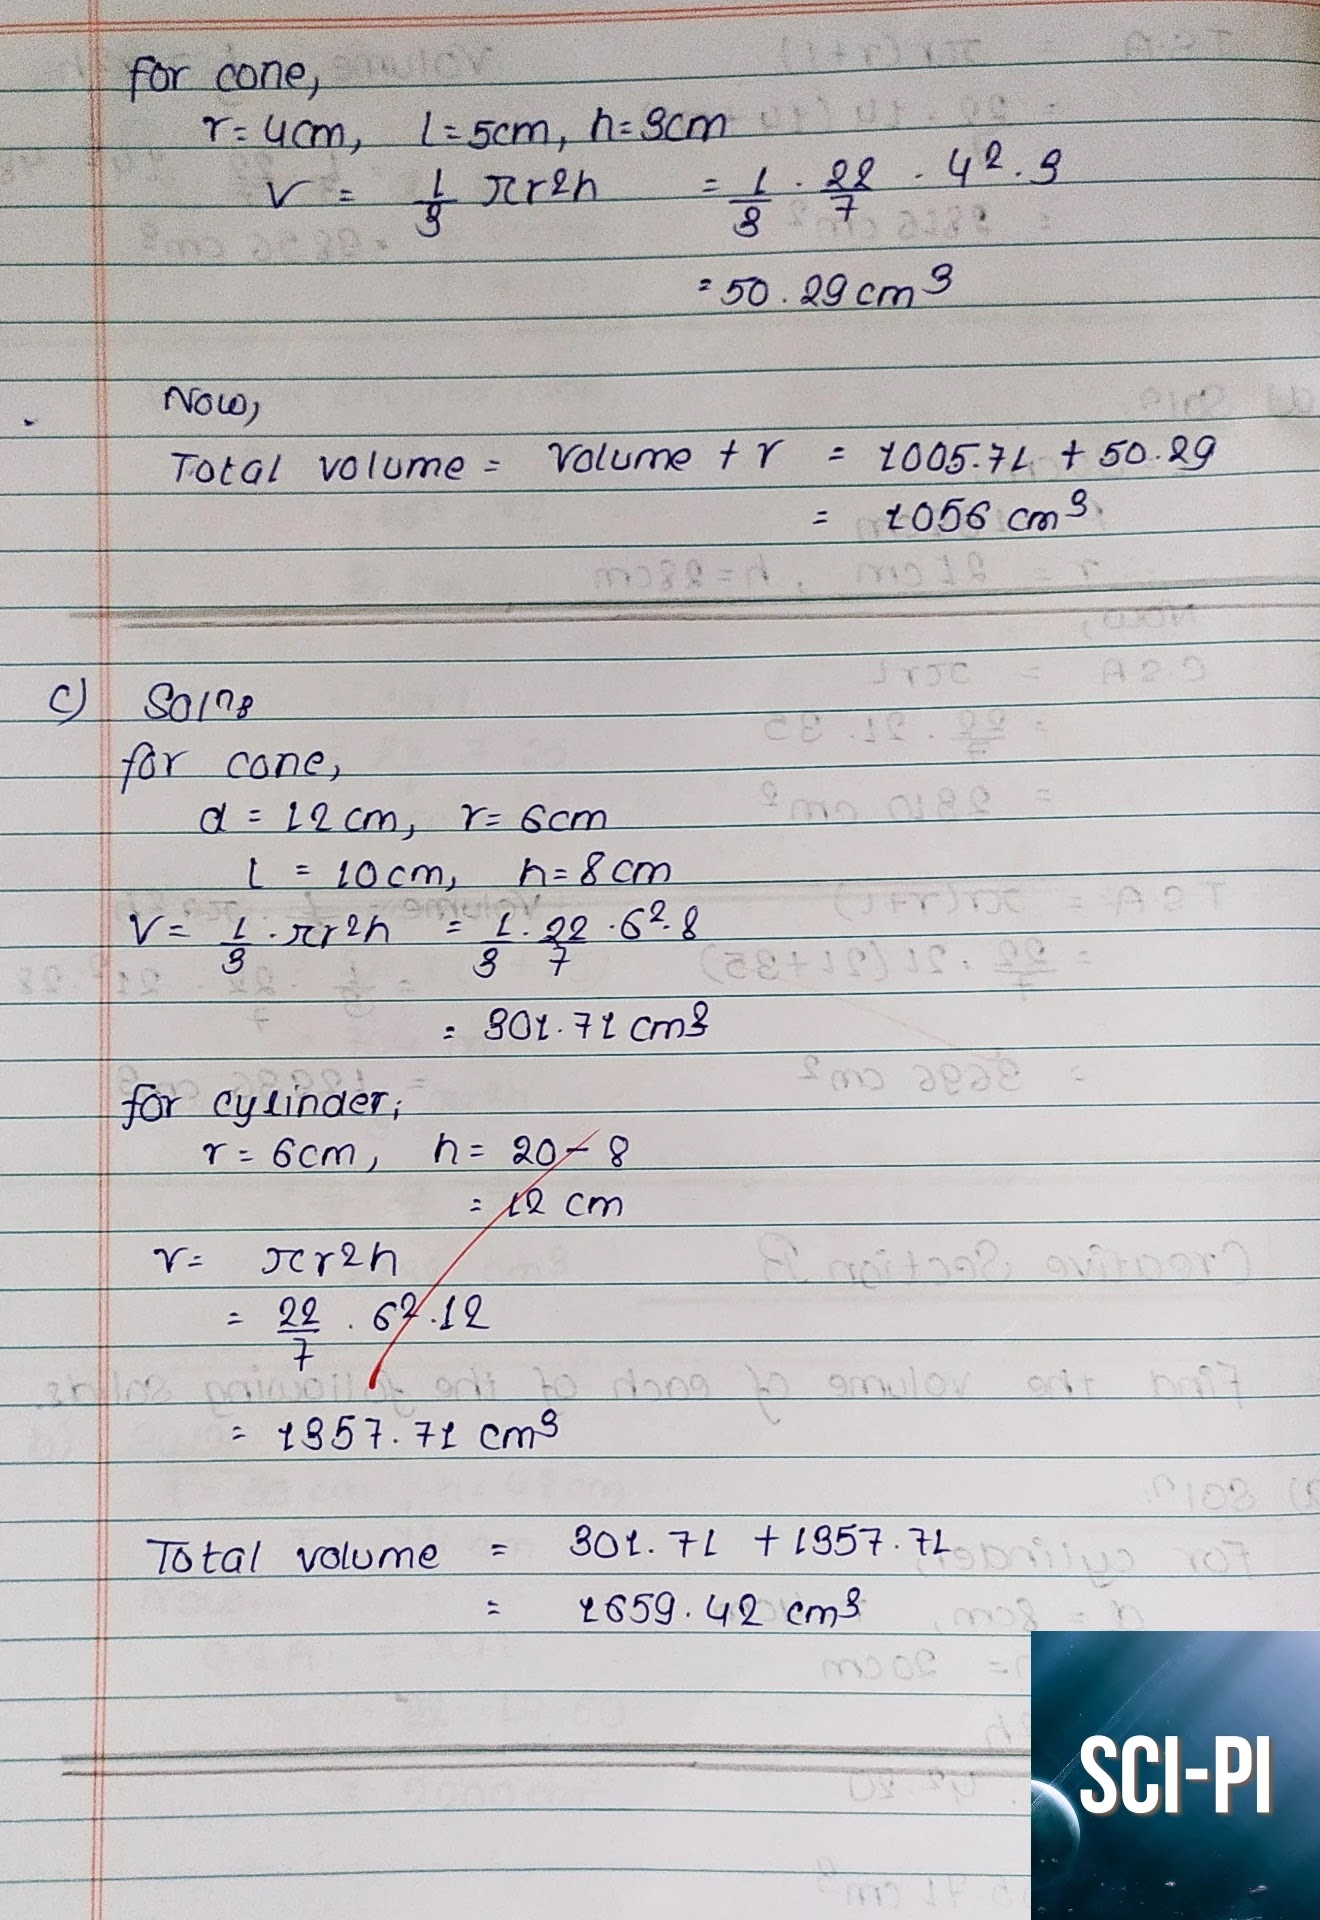 for cone,
r = 4cm, l = 5cm, h = 3cm
V = 1/3 πr2h = 1/3 . 22/7 . 4² . 3
= 50.29 cm³
Now,
Total volume = volume + r = 1005.71 + 50.29
= 1056 cm³
c) Soln:
for cone,
d = 12 cm, r = 6cm
l = 10cm, h = 8cm
V = 1/3 . πr2h = 1/3 . 22/7 . 6² . 8
= 301.71 cm³
for cylinder;
r = 6cm, h = 20 - 8
= 12 cm
v = πr2h
= 22/7 . 6² . 12
= 1357.71 cm³
Total volume = 301.71 + 1357.71
= 1659.42 cm³
SCI-PI